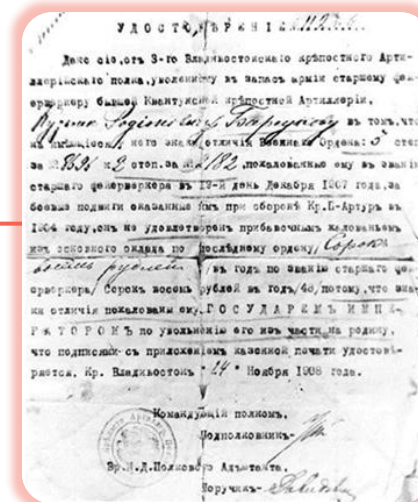 УДОСТОВѢРЕНІЕ. № 11236
Дано сіе, отъ 3-го Владивостокскаго крѣпостного Арти-
ллерійскаго полка, уволенному въ запасъ арміи старшему фей
ерверкеру бывшей Квантунской крѣпостной Артиллеріи,
Кузьмѣ Родіоновичу въ томъ, что
къ имѣющимся у него знакамъ отличія Военнаго Ордена: 3 степ
за № и 2 степ. за № 2182, пожалованные ему въ званіи
старшаго фейерверкера въ 13-й день Декабря 1907 года, за
боевые подвиги оказанные имъ при оборонѣ Кр. П-Артуръ въ
1904 году, онъ не удовлетворенъ прибавочнымъ жалованьемъ
изъ основного оклада по послѣднему ордену, Сорокъ
восемь рублей /въ годъ по званію старшаго фей
ерверкера/ Сорокъ восемь рублей въ годъ /48, потому, что знак
ки отличія пожалованы ему, ГОСУДАРЕМЪ ИМПЕ-
РАТОРОМЪ по увольненію его изъ части на родину,
что подписями съ приложеніемъ казенной печати удостовѣ-
ряется. Кр. Владивостокъ "24" Ноября 1908 года.
Командующій полкомъ,
Подполковникъ-
Вр. И. Д. Полкового Адъютанта,
Поручикъ-